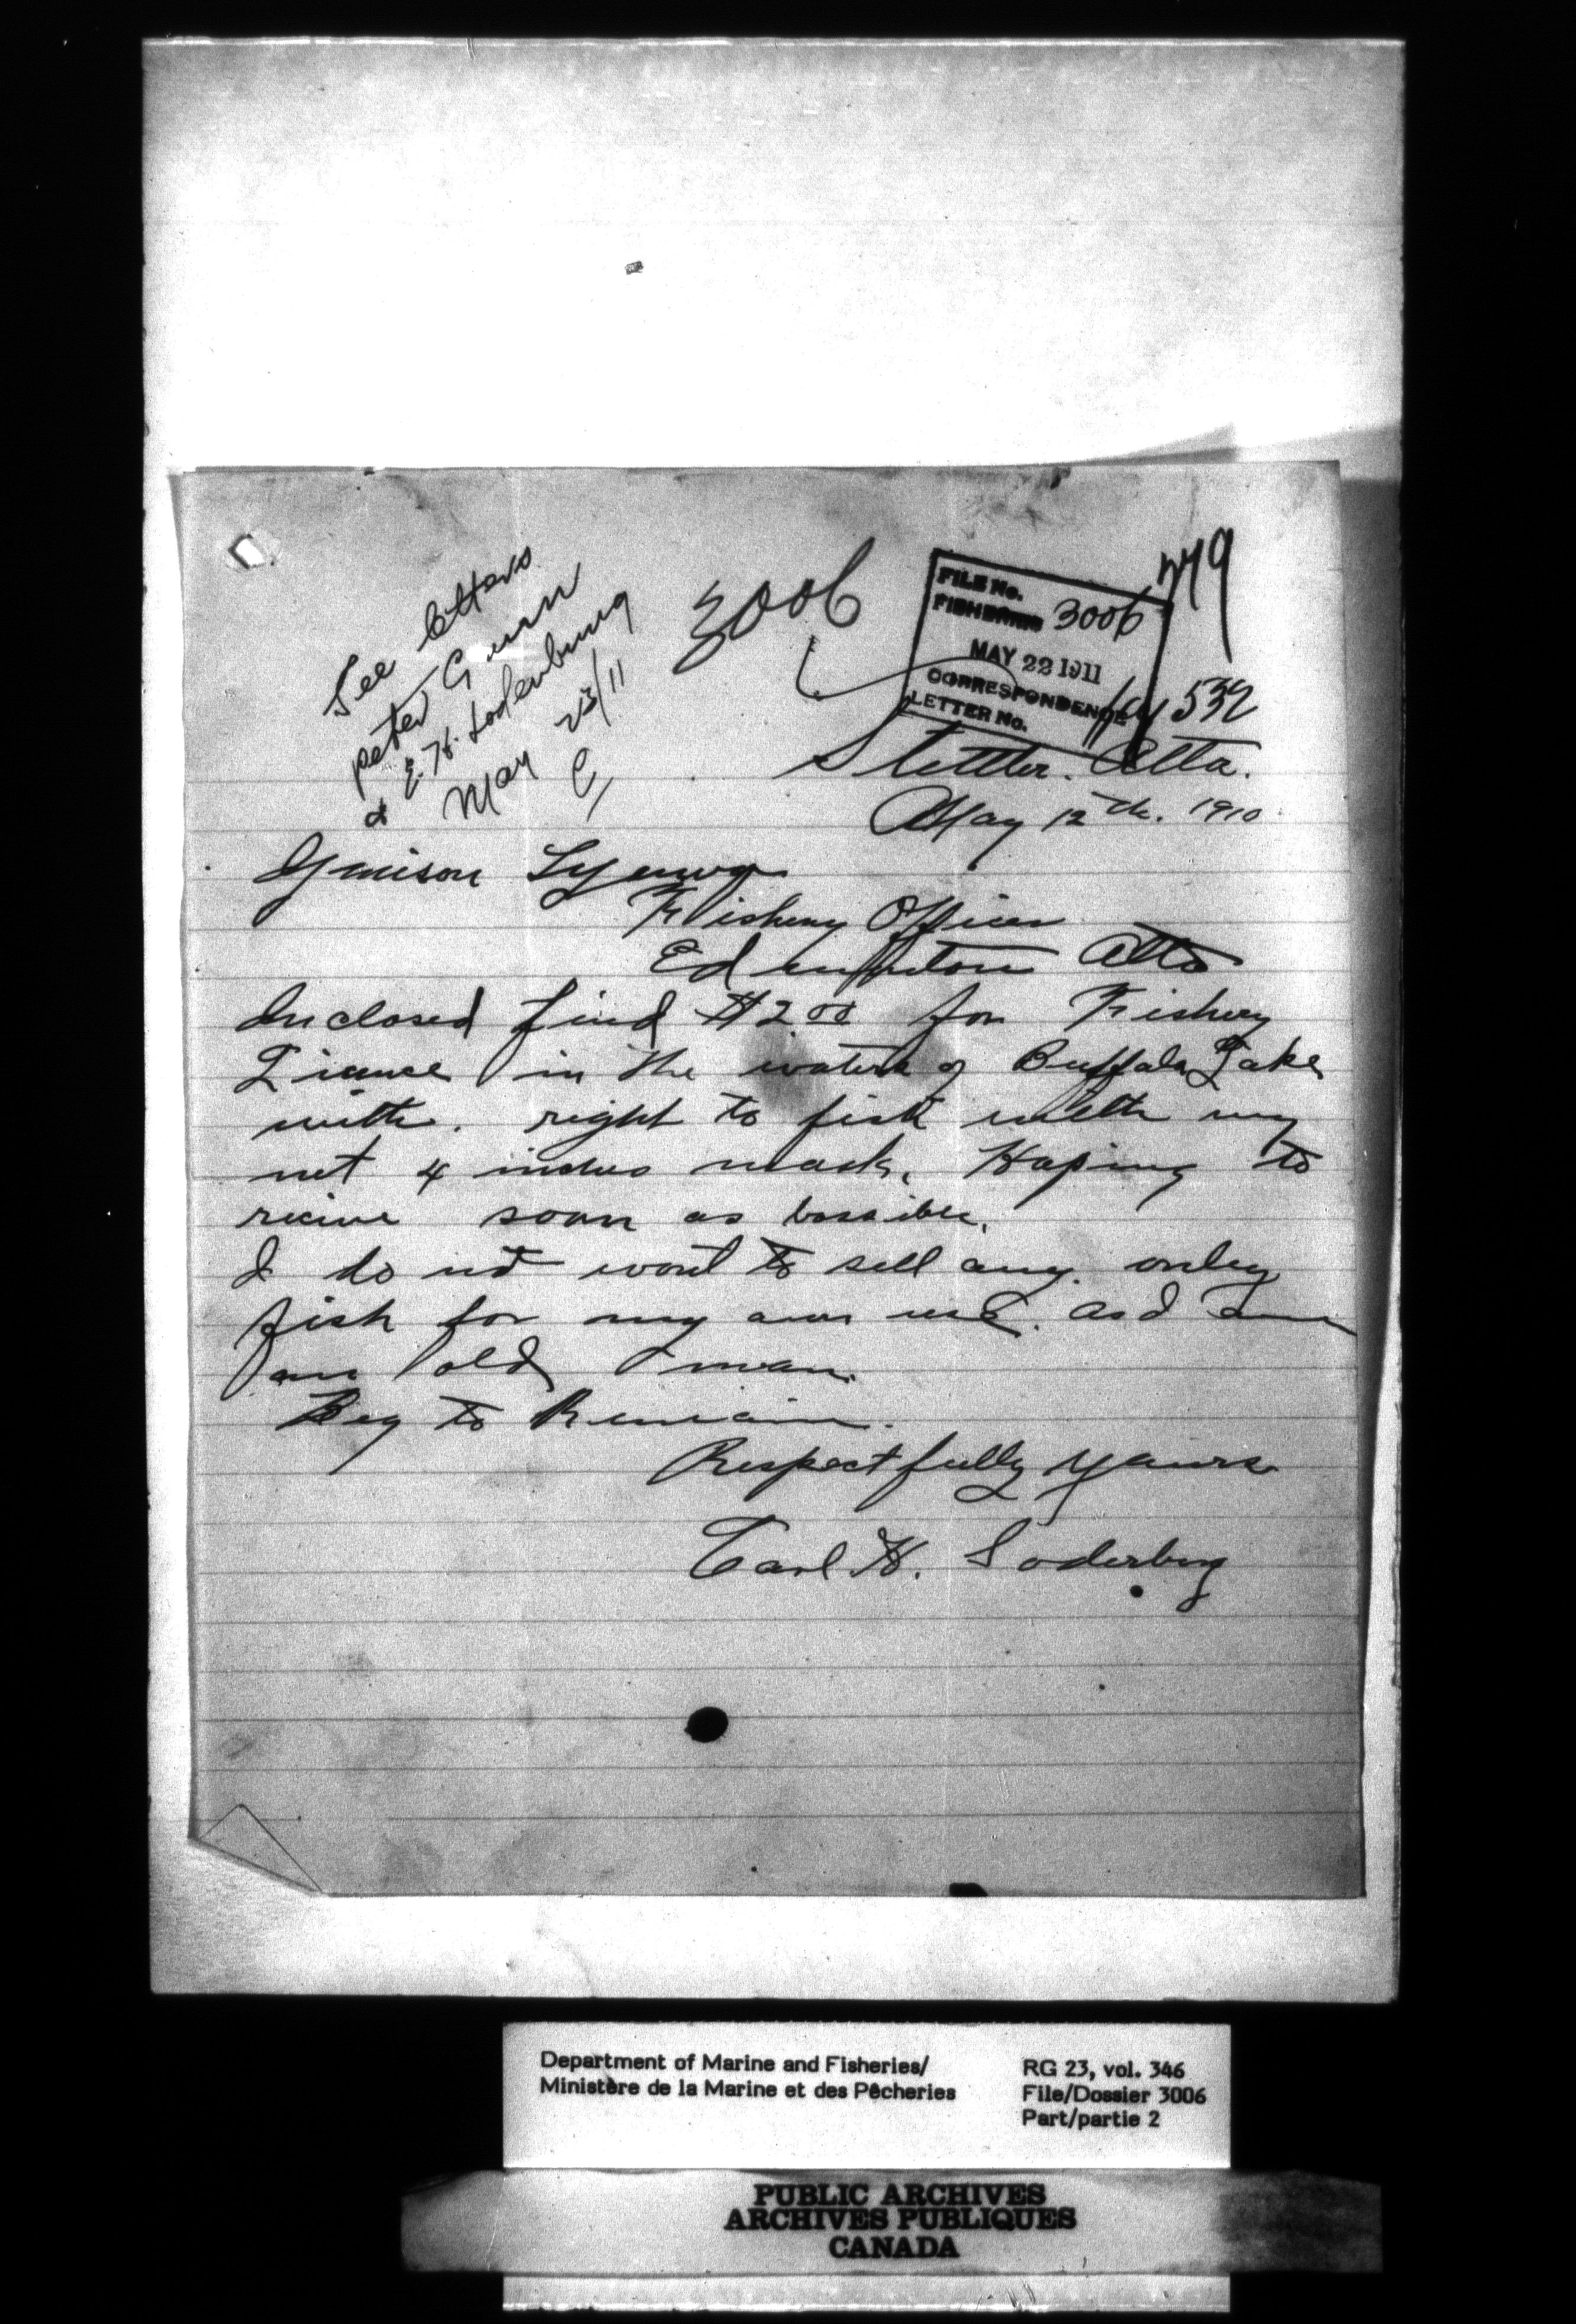 See letters
peter Gunn
& E. H. Soderburg
May 23/11
3006
749
FILE No.
FISHERIES 3006
MAY 22 1911
CORRESPONDENCE
LETTER No. 532
Stettler. Alta.
May 12th. 1910
Fishery Officer
Edmonton Alta
Inclosed find $2 00 for Fishery
Licence in the waters of Buffalo Lake
with. right to fish with my
net 4 inches mash. Hoping to
recive soon as possible.
I do not want to sell any. onley
fish for my own use. as I am
an old man.
Beg to Remain.
Respectfully yours
Carl H. Soderberg
Department of Marine and Fisheries/
Ministère de la Marine et des Pêcheries
RG 23, vol. 346
File/Dossier 3006
Part/partie 2
PUBLIC ARCHIVES
ARCHIVES PUBLIQUES
CANADA